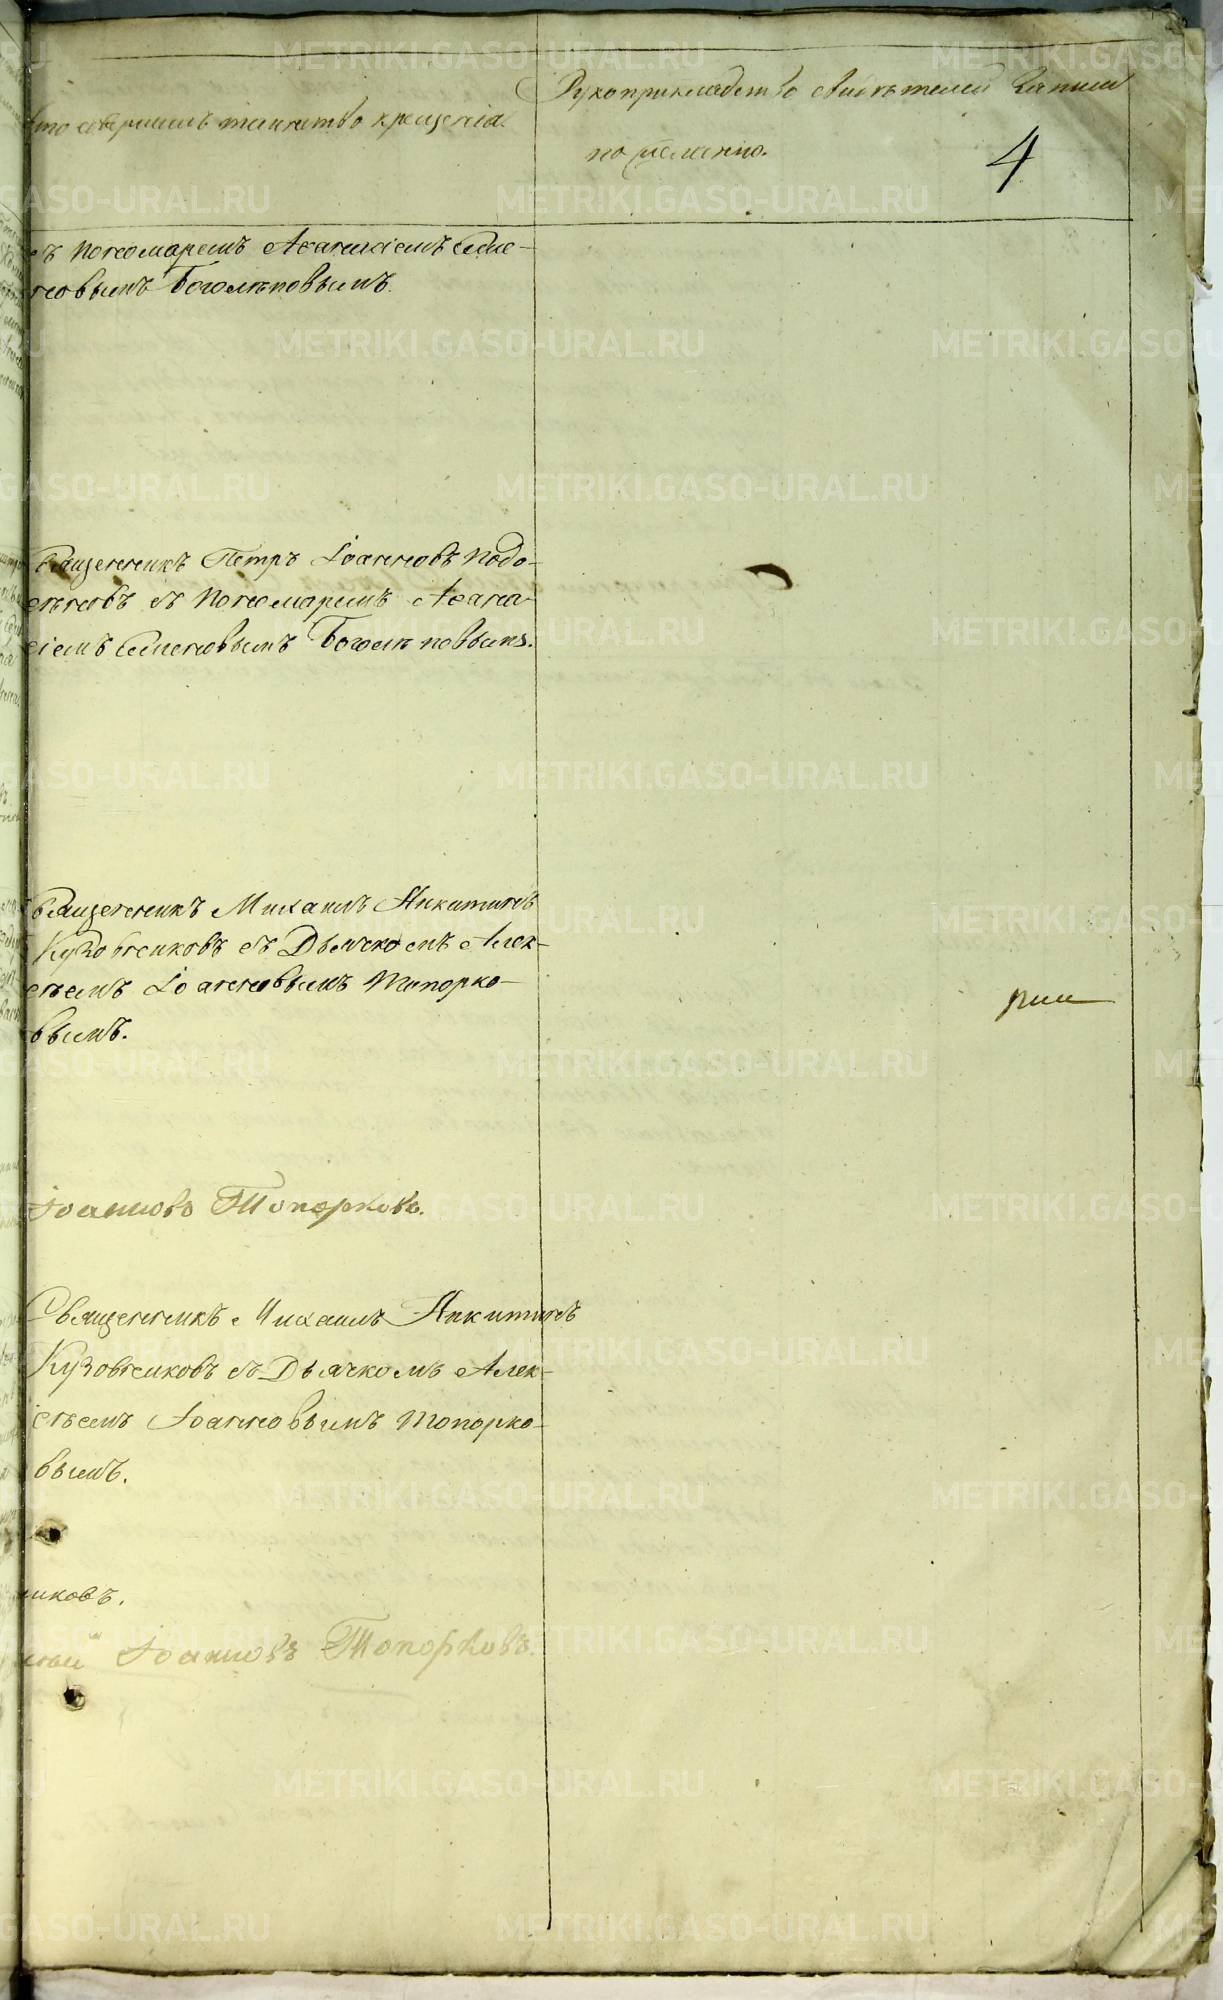 кто совершилъ таинство крещенія.
Рукоприкладство свидѣтелей записи
по желанію.
4
съ Пономаремъ Аѳанасіемъ Симе-
новымъ Боголѣповымъ.
Священникъ Петръ Іоанновъ Подо-
сѣновъ съ Пономаремъ Аѳана-
сіемъ Сименовымъ Боголѣповымъ.
Священникъ Михаилъ Никитинъ
Кузовниковъ съ Дьячкомъ Алек-
сѣемъ Іоанновымъ Топорко-
вымъ.
Іоанновъ Топорковъ.
Священникъ Михаилъ Никитинъ
Кузовниковъ съ Дьячкомъ Алек-
сѣемъ Іоанновымъ Топорко-
вымъ.
никовъ.
Іоанновъ Топорковъ.
METRIKI.GASO-URAL.RU